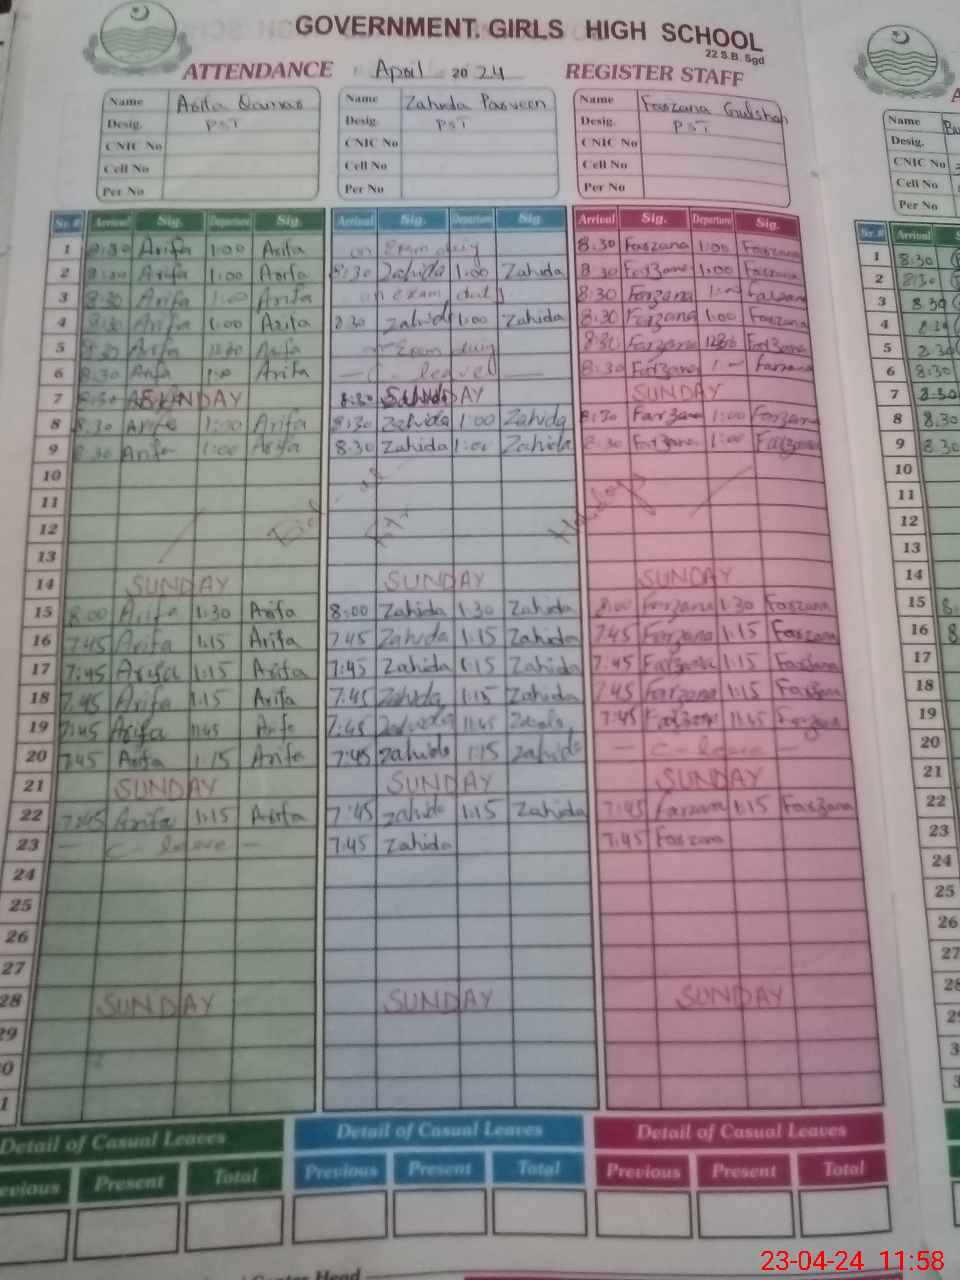 GOVERNMENT. GIRLS HIGH SCHOOL
22 S.B. Sgd
ATTENDANCE April 2024 REGISTER STAFF
Name Arifa Qamar Name Zahida Parveen Name Farzana Gulshan Name
Desig. PST Desig. PST Desig. PST Desig.
CNIC No CNIC No CNIC No CNIC No
Cell No Cell No Cell No Cell No
Per No Per No Per No Per No
Sr. # Arrival Sig. Departure Sig. Arrival Sig. Departure Sig Arrival Sig. Departure Sig. Sr. # Arrival
1 8:30 Arifa 1:00 Arifa on Exam duty 8:30 Farzana 1:00 Farzana 1 8:30
2 8:30 Arifa 1:00 Arifa 8:30 Zahida 1:00 Zahida 8:30 Farzana 1:00 Farzana 2 8:30
3 8:30 Arifa 1:00 Arifa on exam duty 8:30 Farzana Farzana 3 8:30
4 8:30 Arifa 1:00 Arifa 8:30 Zahida 1:00 Zahida 8:30 Farzana 1:00 Farzana 4
5 8:30 Arifa Arifa on Exam duty 8:30 Farzana Farzana 5
6 8:30 Arifa Arifa — C- leave — 8:30 Farzana Farzana 6 8:30
7 8:30 SUNDAY 8:30 SUNDAY SUNDAY 7 8:30
8 8:30 Arifa 1:00 Arifa 8:30 Zahida 1:00 Zahida 8:30 Farzana 1:00 Farzana 8 8:30
9 8:30 Arifa 1:00 Arifa 8:30 Zahida 1:00 Zahida 8:30 Farzana 1:00 Farzana 9 8:30
10 10
11 Holidays 11
12 12
13 13
14 SUNDAY SUNDAY SUNDAY 14
15 8:00 Arifa 1:30 Arifa 8:00 Zahida 1:30 Zahida 8:00 Farzana 1:30 Farzana 15
16 7:45 Arifa 1:15 Arifa 7:45 Zahida 1:15 Zahida 7:45 Farzana 1:15 Farzana 16
17 7:45 Arifa 1:15 Arifa 7:45 Zahida 1:15 Zahida 7:45 Farzana 1:15 Farzana 17
18 7:45 Arifa 1:15 Arifa 7:45 Zahida 1:15 Zahida 7:45 Farzana 1:15 Farzana 18
19 7:45 Arifa 11:45 Arifa 7:45 Zahida 11:45 Zahida 7:45 Farzana 11:45 Farzana 19
20 7:45 Arifa 1:15 Arifa 7:45 Zahida 1:15 Zahida — C- leave — 20
21 SUNDAY SUNDAY SUNDAY 21
22 7:45 Arifa 1:15 Arifa 7:45 Zahida 1:15 Zahida 7:45 Farzana 1:15 Farzana 22
23 — C- leave — 7:45 Zahida 7:45 Farzana 23
24 24
25 25
26 26
27 27
28 SUNDAY SUNDAY SUNDAY 28
29 29
Detail of Casual Leaves Detail of Casual Leaves Detail of Casual Leaves
Previous Present Total Previous Present Total Previous Present Total
23-04-24 11:58